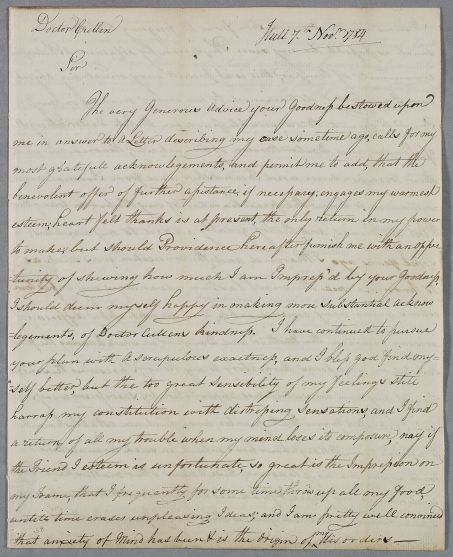 Doctor Cullen
Hull 7th Novr 1789
Sir
The very Generous advice your Goodness bestowed upon
me in answer to a Letter describing my case sometime ago, calls for my
most gratefull acknowlegements, and permit me to add, that the
benevolent offer of further assistance, if necessary, engages my warmest
esteem; heart felt thanks is at present, the only return in my power
to make; but should Providence hereafter furnish me with an oppor
tunity of shewing how much I am Impress'd by your Goodness,
I should deem myself happy in making more substantial acknow
-legements, of Doctor Cullens kindness. I have continued to pursue
your plan with a scrupulous exactness, and I bless god find my-
-self better, but the too great sensibility of my feelings still
harrass my constitution with distressing sensations, and I find
a return of all my trouble when my mind loses its composure, nay if
the Friend I esteem is unfortunate, so great is the Impression on
my Frame, that I frequently for some time throw up all my food,
untill time erases unpleasing Ideas; and I am pretty well convinced
that anxiety of Mind has been & is the Origin of my disorders —